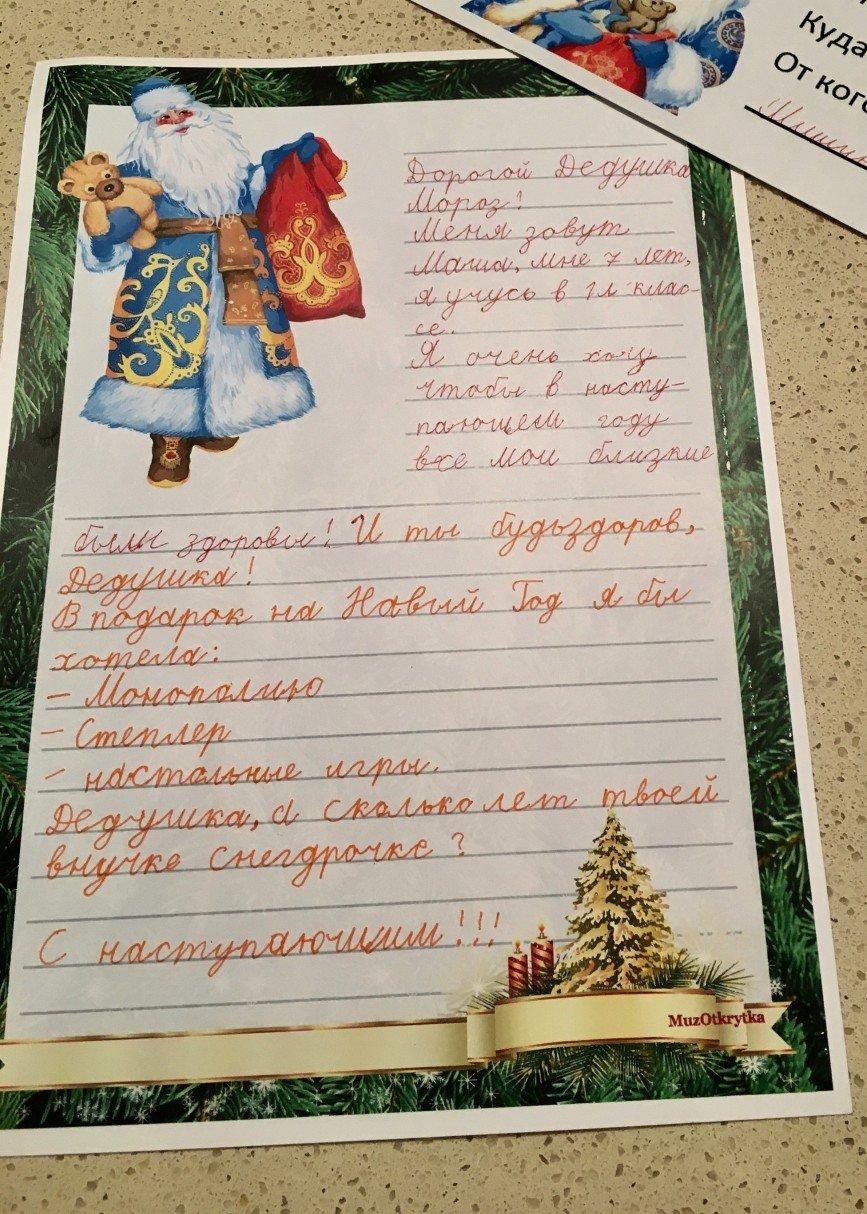 Куда
От кого
Дорогой Дедушка
Мороз!
Меня зовут
Маша, мне 7 лет,
я учусь в 1л клас-
се.
Я очень хочу
чтобы в насту-
пающем году
все мои близкие
были здоровы! И ты будьздоров,
Дедушка!
В подарок на Новый Год я бы
хотела:
- Монополию
- Степлер
- настольные игры.
Дедушка, а сколько лет твоей
внучке снегдрочке?
С наступающимим!!!
MuzOtkrytka